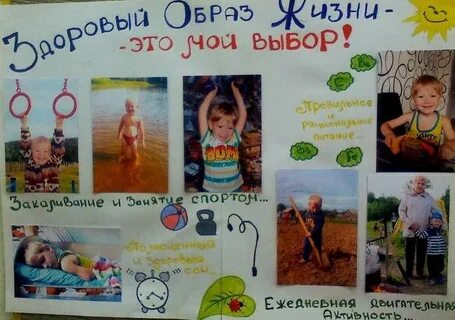 Здоровый Образ Жизни -
- это мой выбор!
Правильное
и
рациональное
питание...
Закаливание и Занятие спортом...
Полноценный
и Здоровый
сон...
Ежедневная двигательная
Активность...